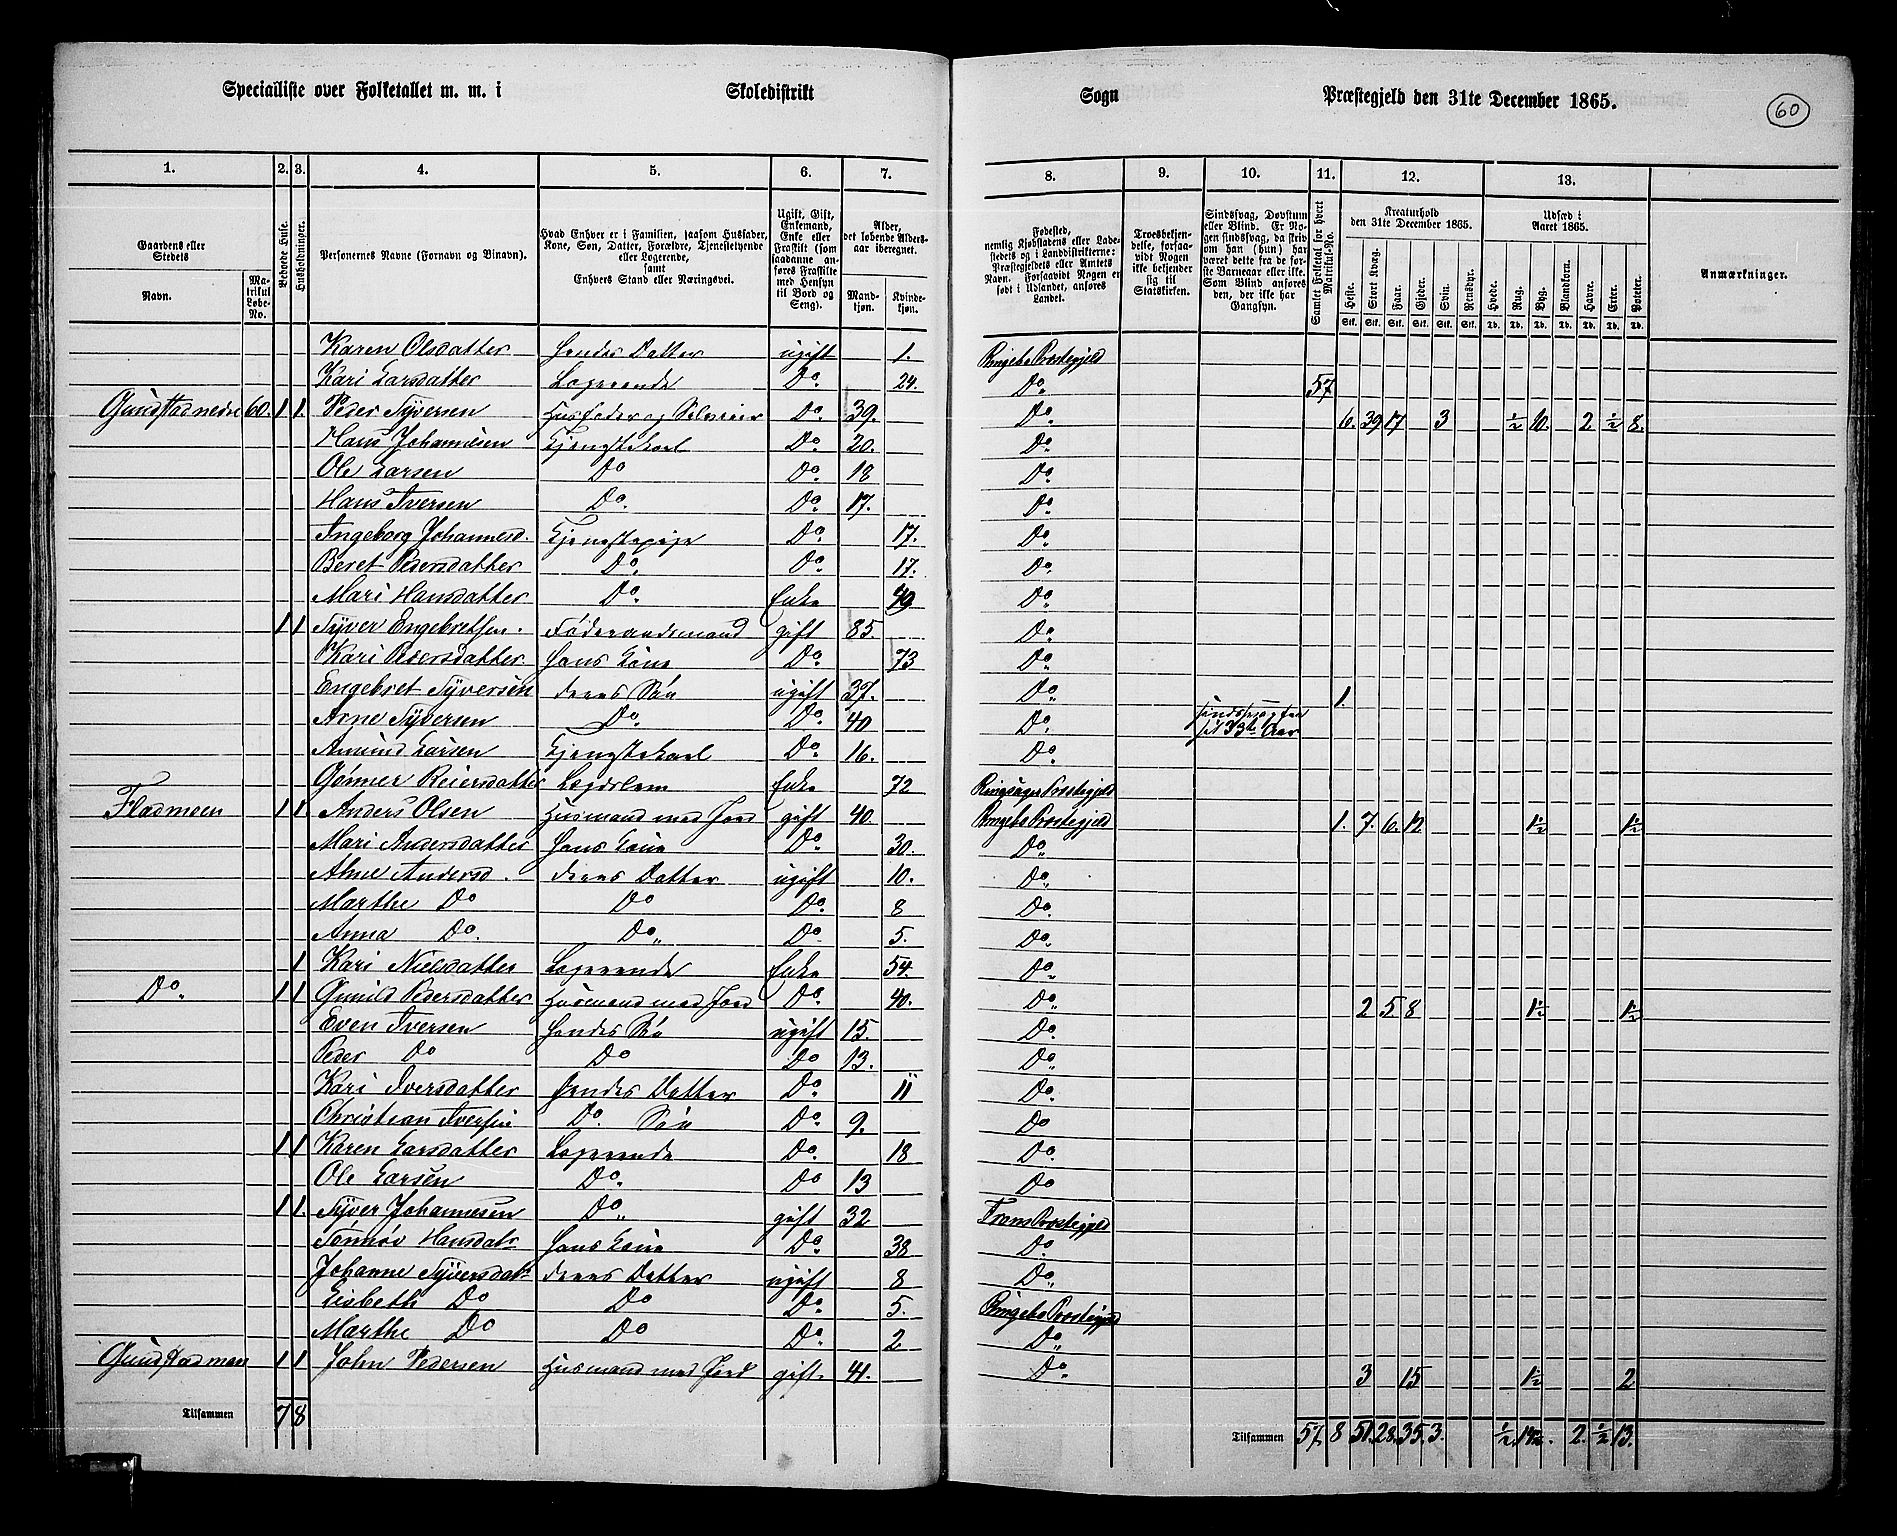 Specialliste over Folketallet m. m. i Skoledistrikt Sogn Præstegjeld den 31te December 1865.
60
1. 2. 3. 4. 5. 6. 7. 8. 9. 10. 11. 12. 13.
Gaardens eller Stedets
Navn.
Matrikul Løbe-No.
Beboede Huse.
Husholdninger.
Personernes Navne (Fornavn og Binavn).
Hvad Enhver er i Familien, saasom Husfader, Kone, Søn, Datter, Forældre, Tjenestetyende eller Logerende, samt Enhvers Stand eller Næringsvei.
Ugift, Gift, Enkemand, Enke eller Fraskilt (som saadanne anføres Fraskilte med Hensyn til Bord og Seng).
Alder, det løbende Alders-aar iberegnet.
Mandkjøn.
Kvindekjøn.
Fødested, nemlig Kjøbstadens eller Ladestedets og i Landdistrikterne: Præstegjeldets eller Amtets Navn. Forsaavidt Nogen er født i Udlandet, anføres Landet.
Troesbekjendelse, forsaavidt Nogen ikke bekjender sig til Statskirken.
Sindssvag, Døvstum eller Blind. Er Nogen sindssvag, da skriv om han (hun) har været dette fra de første Barneaar eller ikke. Som Blind ansøres den, der ikke har Gangsyn.
Samlet Folketal for hvert Matrikul-No.
Kreaturhold den 31te December 1865.
Heste. Stort Kvæg. Faar. Gjeder. Svin. Rensdyr.
Udsæd i Aaret 1865.
Hvede. Rug. Byg. Blandkorn. Havre. Erter. Poteter.
Anmærkninger.
Karen Olsdatter hendes Datter ugift 1. Ringebo Præstegjeld
Kari Larsdatter Logerende Do. 24. Do. 57
Gundstad nedre 60. 1 1. Peder Syversen Husfader og Selveier Do. 39. Do. 6. 39 17 3 ½ 10. 2 ½ 8.
Hans Johannesen Tjenestekarl Do. 20. Do.
Ole Larsen Do Do. 18 Do.
Hans Iversen Do. Do. 17. Do.
Ingeborg Johannesd. Tjenestepige Do. 17. Do.
Beret Pedersdatter Do. Do. 17. Do.
Mari Hansdatter Do. Enke 49 Do.
1 1 Syver Engebretsen. Føderaadsmand gift 85. Do.
Kari Pedersdatter hans Kone Do. 73 Do.
Engebret Syversen deres Søn ugift 37. Do. 1.
Arne Syversen Do. Do. 40 Do. sindssvag fra sit 33te Aar
Amund Larsen Tjenestekarl Do. 16. Do.
Gønner Reiersdatter Lægdslem Enke 72 Ringsager Præstegjeld
Fladmoen 1 1. Anders Olsen Husmand med Jord gift 40. Ringebo Præstegjeld 1. 7 6. 12 1½ 1½
Mari Andersdatter hans Kone Do. 30. Do.
Anne Andersd. deres Datter ugift 10. Do.
Marthe Do Do Do. 8 Do.
Anna Do. Do. Do. 5. Do.
1 Kari Nielsdatter Logerende Enke 54. Do.
Do. 1 1 Gunild Pedersdatter Husmand med Jord Do. 40. Do. 2 5 8 1½ 1½
Even Iversen hendes Søn ugift 15. Do.
Peder Do Do Do 13. Do.
Kari Iversdatter hendes Datter Do. 11 Do.
Christian Iversen Do. Søn Do. 9. Do
1 1 Karen Larsdatter Logerende Do. 18 Do.
Ole Larsen Do. Do 13 Do
1 1. Syver Johannesen Do. gift 32 Frons Præstegjeld
Tønnøv Hansdatr hans Kone Do. 38 Do.
Johanne Syversdatr deres Datter ugift 8 Do.
Lisbeth Do Do Do. 5. Ringebo Præstegjeld
Marthe Do Do Do. 2 Do.
Gundstadmoen 1 1 John Pedersen Husmand med Jord gift. 41. Do. 3 15 1½ 2
Tilsammen 7 8
Tilsammen 57. 8 51. 28. 35. 3. ½ 14½. 2. ½ 13.